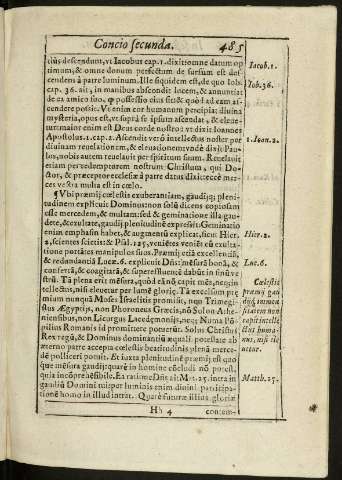 Concio secunda. 485
tiùs descendunt, vt Iacobus cap. 1. dixit: omne datum op
timum, & omne donum perfectum de sursum est des-
cendens à patre luminum. Ille siquidem est, de quo Iob.
cap. 36. ait, in manibus abscondit lucem, & annuntiat
de ea amico suo, ꝙ possessio eius sit: & quòd ad eam as-
cendere possit. Vt enim cor humanum percipiat diuina
mysteria, opus est, vt suprà se ipsum ascendat, & eleue-
tur: maior enim est Deus corde nostro: vt dixit Ioannes
Apostolus. 1. cap. 2. Ascendit verò intellectus noster per
diuinam reuelationem, & eleuationem: vnde dixit Pau-
los, nobis autem reuelauit per spiritum suum. Reuelauit
etiam per redemptorem nostrum Christum, qui Do-
ctor, & præceptor ecclesiæ à patre datus dixit: ecce mer-
ces vestra multa est in cœlo.
¶ Vbi præmij cœlestis exuberantiam, gaudijq; pleni-
tudinem explicuit Dominus: non solũ dicens copiosam
esse mercedem, & multam: sed & geminatione illa gau-
dete, & exultate, gaudij plenitudinẽ expressit. Geminatio
enim emphasin habet, & augmentũ explicat, sicut Hier.
2, scientes scietis: & Psal. 125, venientes veniẽt cũ exulta-
tione portātes manipulos suos. Præmij etiã excellentiã,
& redundantiã Luc. 6. explicuit Dñs: mẽsurã bonã, &
confertã, & coagitatã, & superesfluentẽ dabũt in sinũ ve
strũ. Tã plena erit mẽsura, quòd eã nõ capit mẽs, neq; in
tellectus, nisi eleuetur per lumẽ gloriæ. Tã excelsum præ
mium nunquã Moses Israelitis promisit, neq; Trimegi-
stus Ægyptijs, non Phoroneus Græcis, nũ Solon Athe-
niensibus, non Licurgus Lacedęmonijs, neq; Numa Põ
pilius Romanis id promittere potuerũt. Solus Christus
Rex regũ, & Dominus dominantiũ æquali potestate ab
æterno patre accepta cœlestis beatitudinis plenũ merce-
dẽ polliceri potuit. Et iuxta plenitudinẽ præmij est quo
que mẽsura gaudij: quare in homine cõcludi nõ potest,
quia incõprehẽsibile. Ea ratione Dñs ait: Mat. 25. intra in
gaudiũ Domini tui: per luminis enim diuini participa-
tionẽ homo in illud intrat. Quare futuræ illius gloriæ
Hh 4 contem-
Iacob. 1.
Iob. 36.
1. Ioan. 2.
Hier. 2.
Luc. 6.
Cœlestis
præmij gau
diũ, immen
sitatem non
capit intelle
ctus huma-
nus, nisi ele
uetur.
Matth. 25.